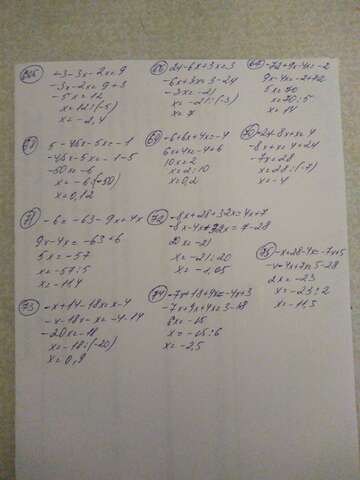 -3-3x-2x=9
-3x-2x=9+3
-5x=12
x=12:(-5)
x=-2,4
67 24-6x+3x=3
-6x+3x=3-24
-3x=-21
x=-21:(-3)
x=7
-72+9x-4x=-2
9x-4x=-2+72
5x=70
x=70:5
x=14
5-45x-5x=-1
-45x-5x=-1-5
-50x=-6
x=-6:(-50)
x=0,12
69 -6+6x+4x=-4
6x+4x=-4+6
10x=2
x=2:10
x=0,2
70 -24-8x+x=4
-8x+x=4+24
-7x=28
x=28:(-7)
x=-4
71 -6=-63-9x+4x
9x-4x=-63+6
5x=-57
x=-57:5
x=-11,4
72 -8x+28+32x=4x+7
x=-21:20
x=-1,05
75 -x+28-4x=-7x+5
-x-4x+7x=5-28
2x=-23
x=-23:2
x=-11,5
73 -x+14-18x=x-4
-x-18x-x=-4-14
-20x=-18
x=-18:(-20)
x=0,9
74 -7x+18+9x=-4x+3
-7x+9x+4x=3-18
6x=-15
x=-15:6
x=-2,5